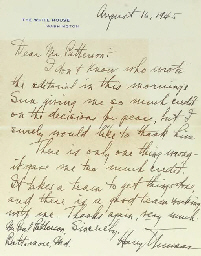 THE WHITE HOUSE
WASHINGTON
August 16, 1945
Dear Mr. Patterson:
I don't know who wrote
the editorial in this mornings
Sun giving me so much credit
on the decision for peace, but I
surely would like to thank him.
There is only one thing wrong -
it gave me too much credit.
It takes a team to get things done
and there is a good team working
with me. Thanks again, very much
Patterson, Sincerely,
Baltimore, Md. Harry Truman